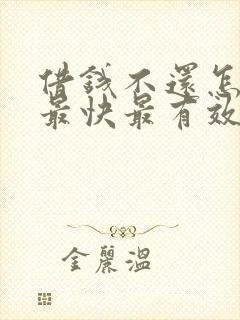 借錢不還怎
最快最有效
金麗溫